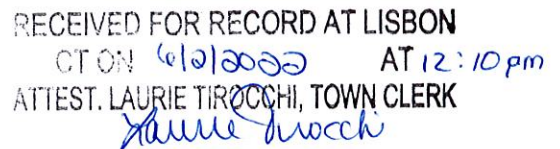 RECEIVED FOR RECORD AT LISBON
CT ON 6/2/2022 AT 12:10 pm
ATTEST. LAURIE TIROCCHI, TOWN CLERK
Laurie Tirocchi